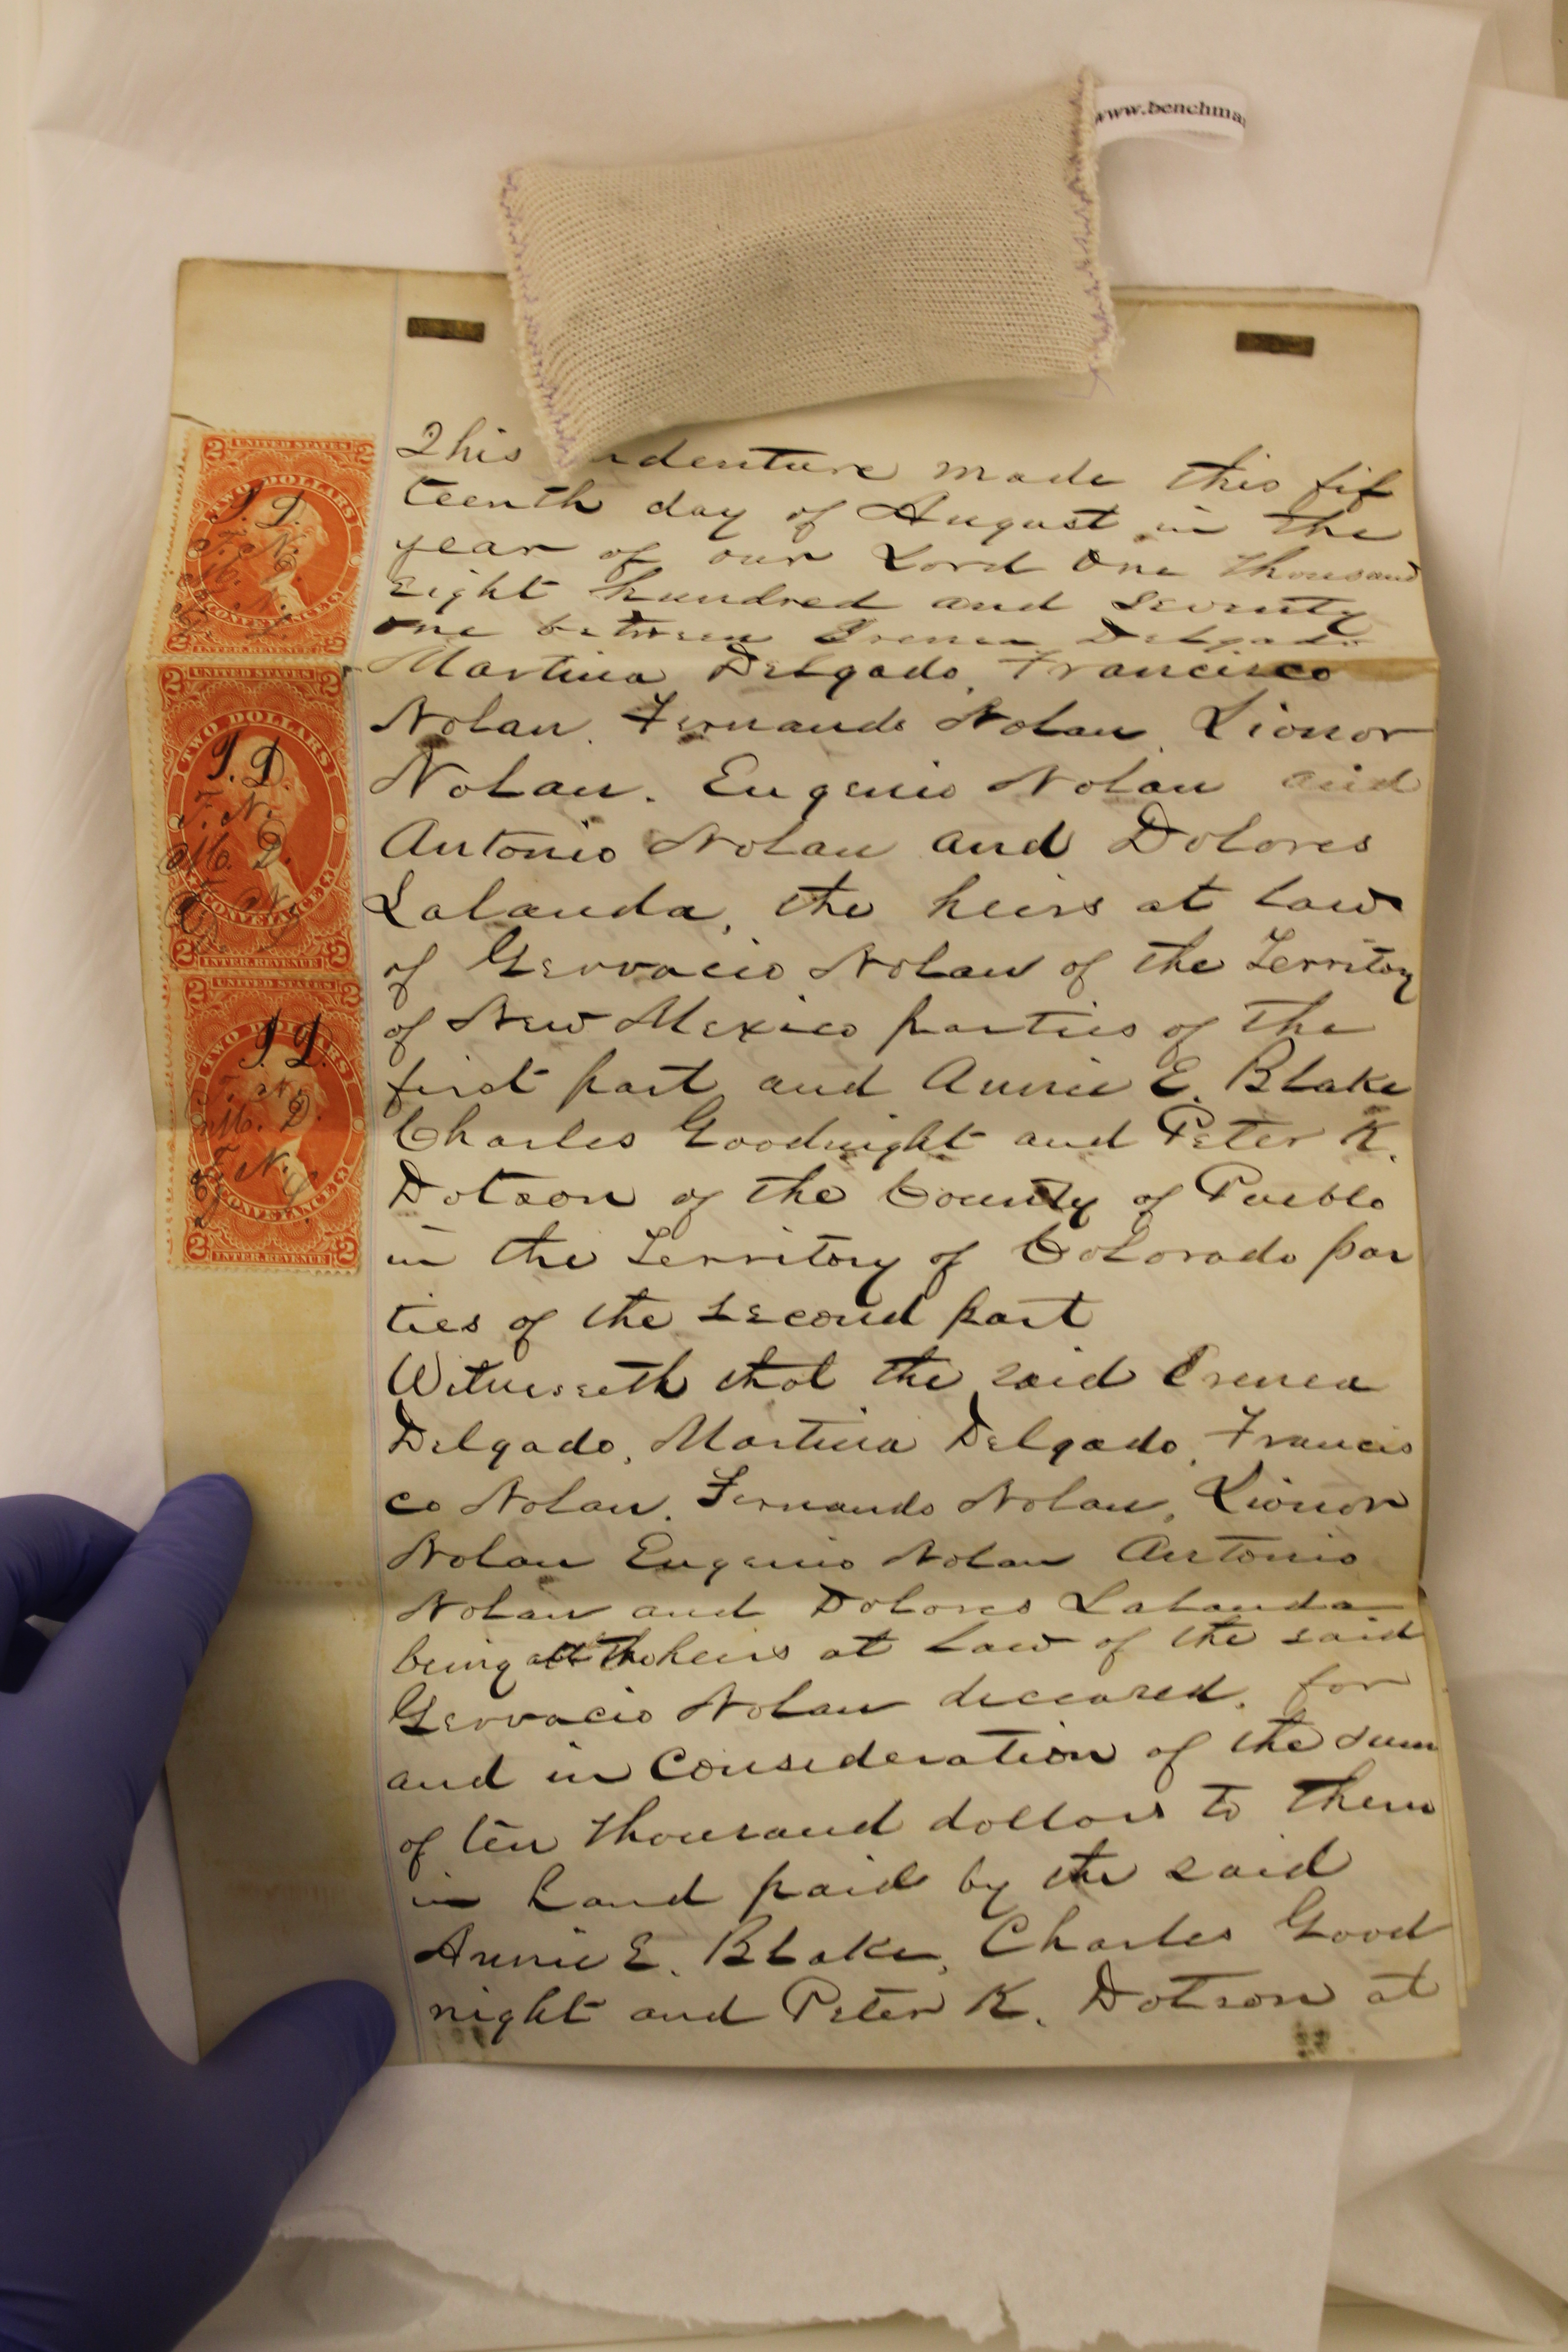 www.benchma
This denture made this fif
teenth day of August in the
year of our Lord One Thousand
Eight hundred and Seventy
one between Irenea Delgado
Martina Delgado, Francisco
Nolan. Fernando Nolan, Lionor
Nolan. Eugenio Nolan and
Antonio Nolan and Dolores
Lalanda, the heirs at law
of Gervacio Nolan of the Territory
of New Mexico parties of the
first part and Annie E. Blake
Charles Goodnight and Peter K.
Dotson of the County of Pueblo
in the Territory of Colorado par
ties of the second part
Witnesseth that the said Irenea
Delgado, Martina Delgado, Francis
co Nolan. Fernando Nolan, Lionor
Nolan Eugenio Nolan Antonio
Nolan and Dolores Lalanda
being all the heirs at law of the said
Gervacio Nolan deceased, for
and in consideration of the sum
of ten thousand dollars to them
in hand paid by the said
Annie E. Blake, Charles Good
night and Peter K. Dotson at
2 UNITED STATES 2
TWO DOLLARS
I. D.
F. N.
CONVEYANCE
2 INTER. REVENUE 2
2 UNITED STATES 2
TWO DOLLARS
I. D.
F. N.
M. D.
CONVEYANCE
2 INTER. REVENUE 2
2 UNITED STATES 2
TWO DOLLARS
I. D.
M. D.
F. N.
CONVEYANCE
2 INTER. REVENUE 2